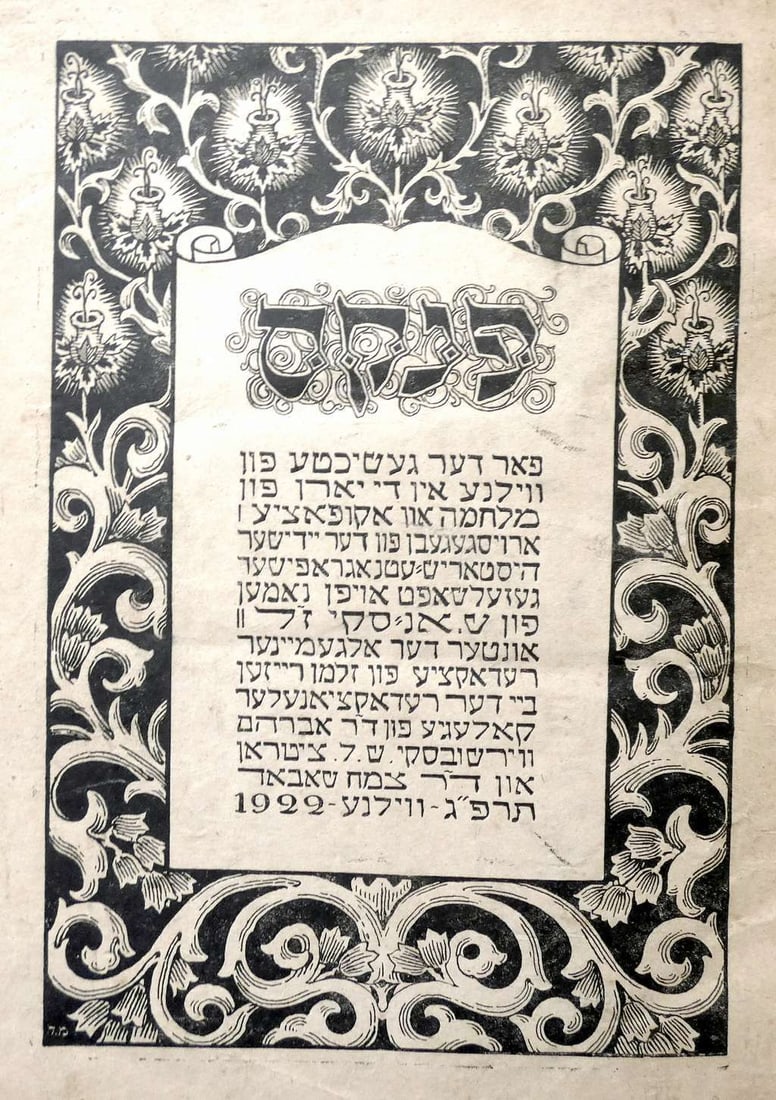 פנקס
פאר דער געשיכטע פון
ווילנע אין די יארן פון
מלחמה און אקופאציע |
ארויסגעגעבן פון דער יידישער
היסטאריש-עטנאגראפישער
געזעלשאפט אויפן נאמען
פון ש. אנ-סקי ז״ל ||
אונטער דער אלגעמיינער
רעדאקציע פון זלמן רייזען
ביי דער רעדאקציאנעלער
קאלעגיע פון ד״ר אברהם
ווירשובסקי. ש. ל. ציטראן
און ד״ר צמח שאבאד
תרפ״ג - ווילנע - 1922